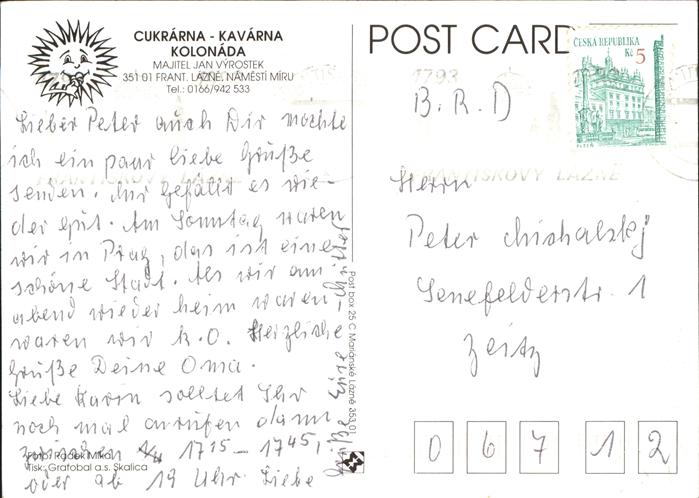 CUKRÁRNA - KAVÁRNA
KOLONÁDA
MAJITEL JAN VÝROSTEK
351 01 FRANT. LÁZNĚ, NÁMĚSTÍ MÍRU
Tel.: 0166/942 533
Lieber Peter auch Dir möchte
ich ein paar liebe Grüße
senden. Mir gefällt es wie-
der gut. Am Sonntag waren
wir in Prag, das ist eine
schöne Stadt. Als wir am
abend wieder heim waren,
waren wir k.O. Herzliche
Grüße Deine Oma.
Liebe Karin solltet Ihr
noch mal anrufen dann
zwischen 17 15 - 17 45,
oder ab 19 Uhr. Liebe
Grüße Eure
Foto: Radek Mika
Tisk: Grafobal a.s. Skalica
Post box 25 C Mariánské Lázně 353 01
POST CARD
ČESKÁ REPUBLIKA
Kč 5
PLZEŇ
1793
FRANTIŠKOVY LÁZNĚ
B.R.D
Herrn
Peter Michalskj
Senefelderstr. 1
Zeitz
0 6 7 1 2